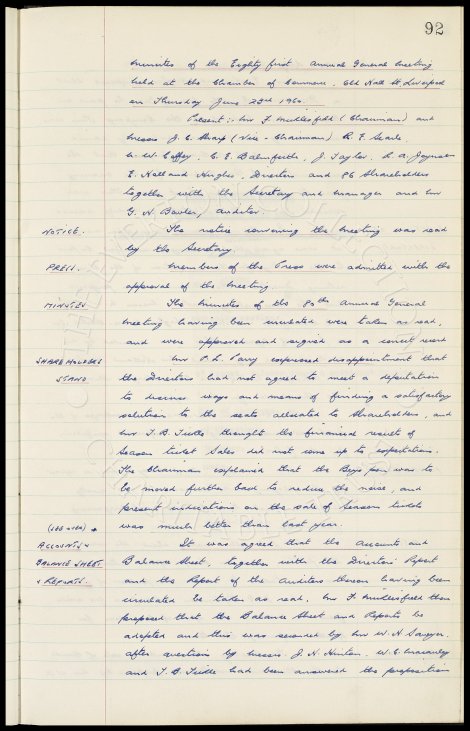 92
Minutes of the Eighty first Annual General Meeting
held at the Chamber of Commerce, Old Hall St, Liverpool
on Thursday June 23rd 1960.
Present :- Mr F. Micklesfield (Chairman) and
Messrs J. C. Sharp (Vice-Chairman) R. F. Searle
C. E. Balmforth, J. Taylor,
E. Holland Hughes, Directors and 86 Shareholders
together with the Secretary and Manager and Mr
G. H. Bowler, Auditor.
NOTICE. The notice convening the meeting was read
by the Secretary.
PRESS. Members of the Press were admitted with the
approval of the meeting.
MINUTES The Minutes of the 80th Annual General
Meeting having been circulated, were taken as read,
and were approved and signed as a correct record
SHAREHOLDERS Mr P. L. Parry expressed disappointment that
STAND the Directors had not agreed to meet a deputation
to discuss ways and means of finding a satisfactory
solution to the seats allocated to Shareholders, and
Mr T. B. thought the financial result of
Season ticket sales did not come up to expectations.
The Chairman explained that the Boys pen was to
be moved further back to reduce the noise, and
present indications on the sale of Season tickets
was much better than last year.
(see over) +
ACCOUNTS + It was agreed that the Accounts and
BALANCE SHEET Balance Sheet, together with the Directors' Report
+ REPORTS. and the Report of the Auditors thereon having been
circulated be taken as read. Mr F. Micklesfield then
proposed that the Balance Sheet and Reports be
adopted and this was seconded by Mr W. H. Sawyer.
After questions by Messrs J. H. Hinton, W. E.
and T. B. had been answered the proposition